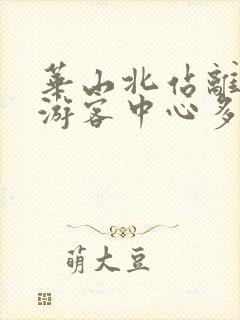 華山北佔離
游客中心多
萌大豆